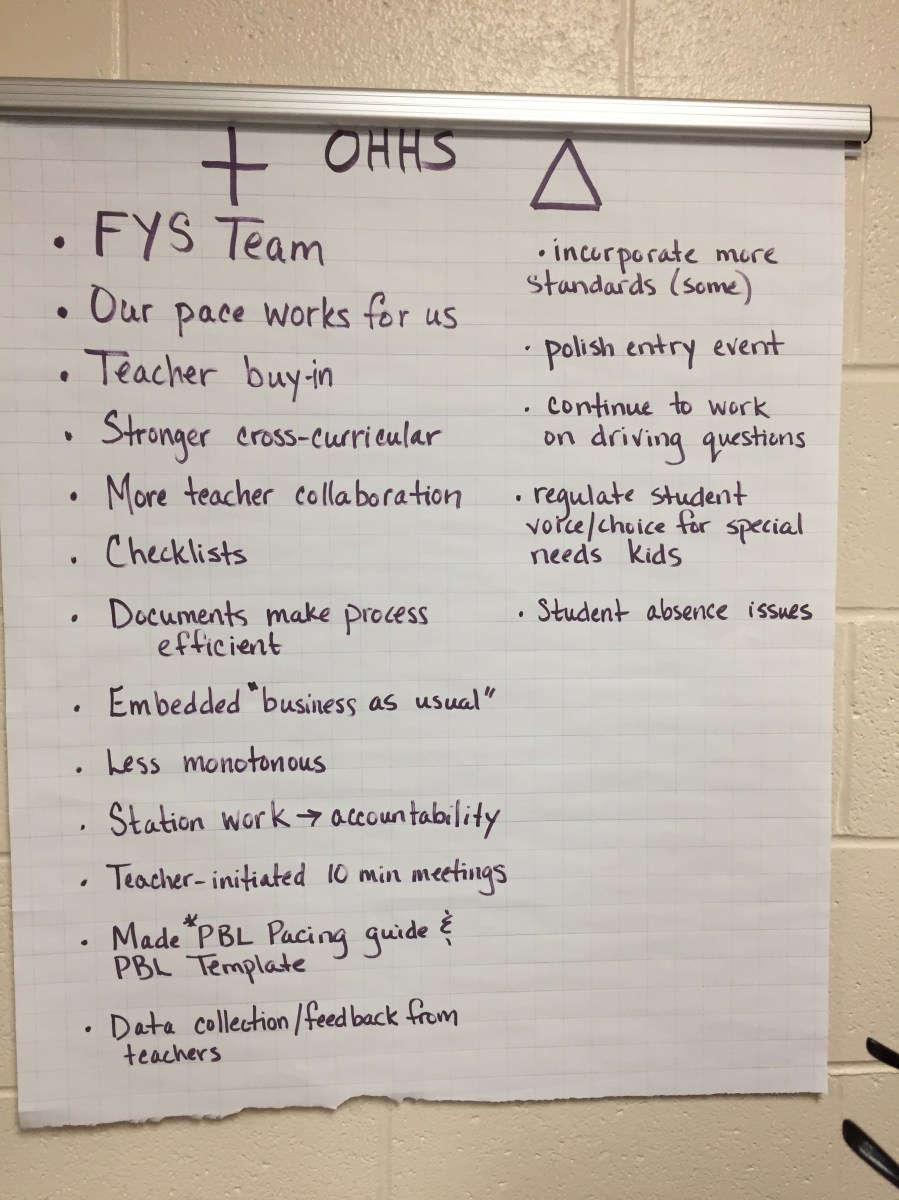 + OHHS △
• FYS Team
• Our pace works for us
• Teacher buy-in
• Stronger cross-curricular
• More teacher collaboration
• Checklists
• Documents make process
efficient
• Embedded "business as usual"
• Less monotonous
• Station work → accountability
• Teacher-initiated 10 min meetings
• Made *PBL Pacing guide &
PBL Template
• Data collection/feedback from
teachers
• incorporate more
standards (some)
• polish entry event
• continue to work
on driving questions
• regulate student
voice/choice for special
needs kids
• Student absence issues